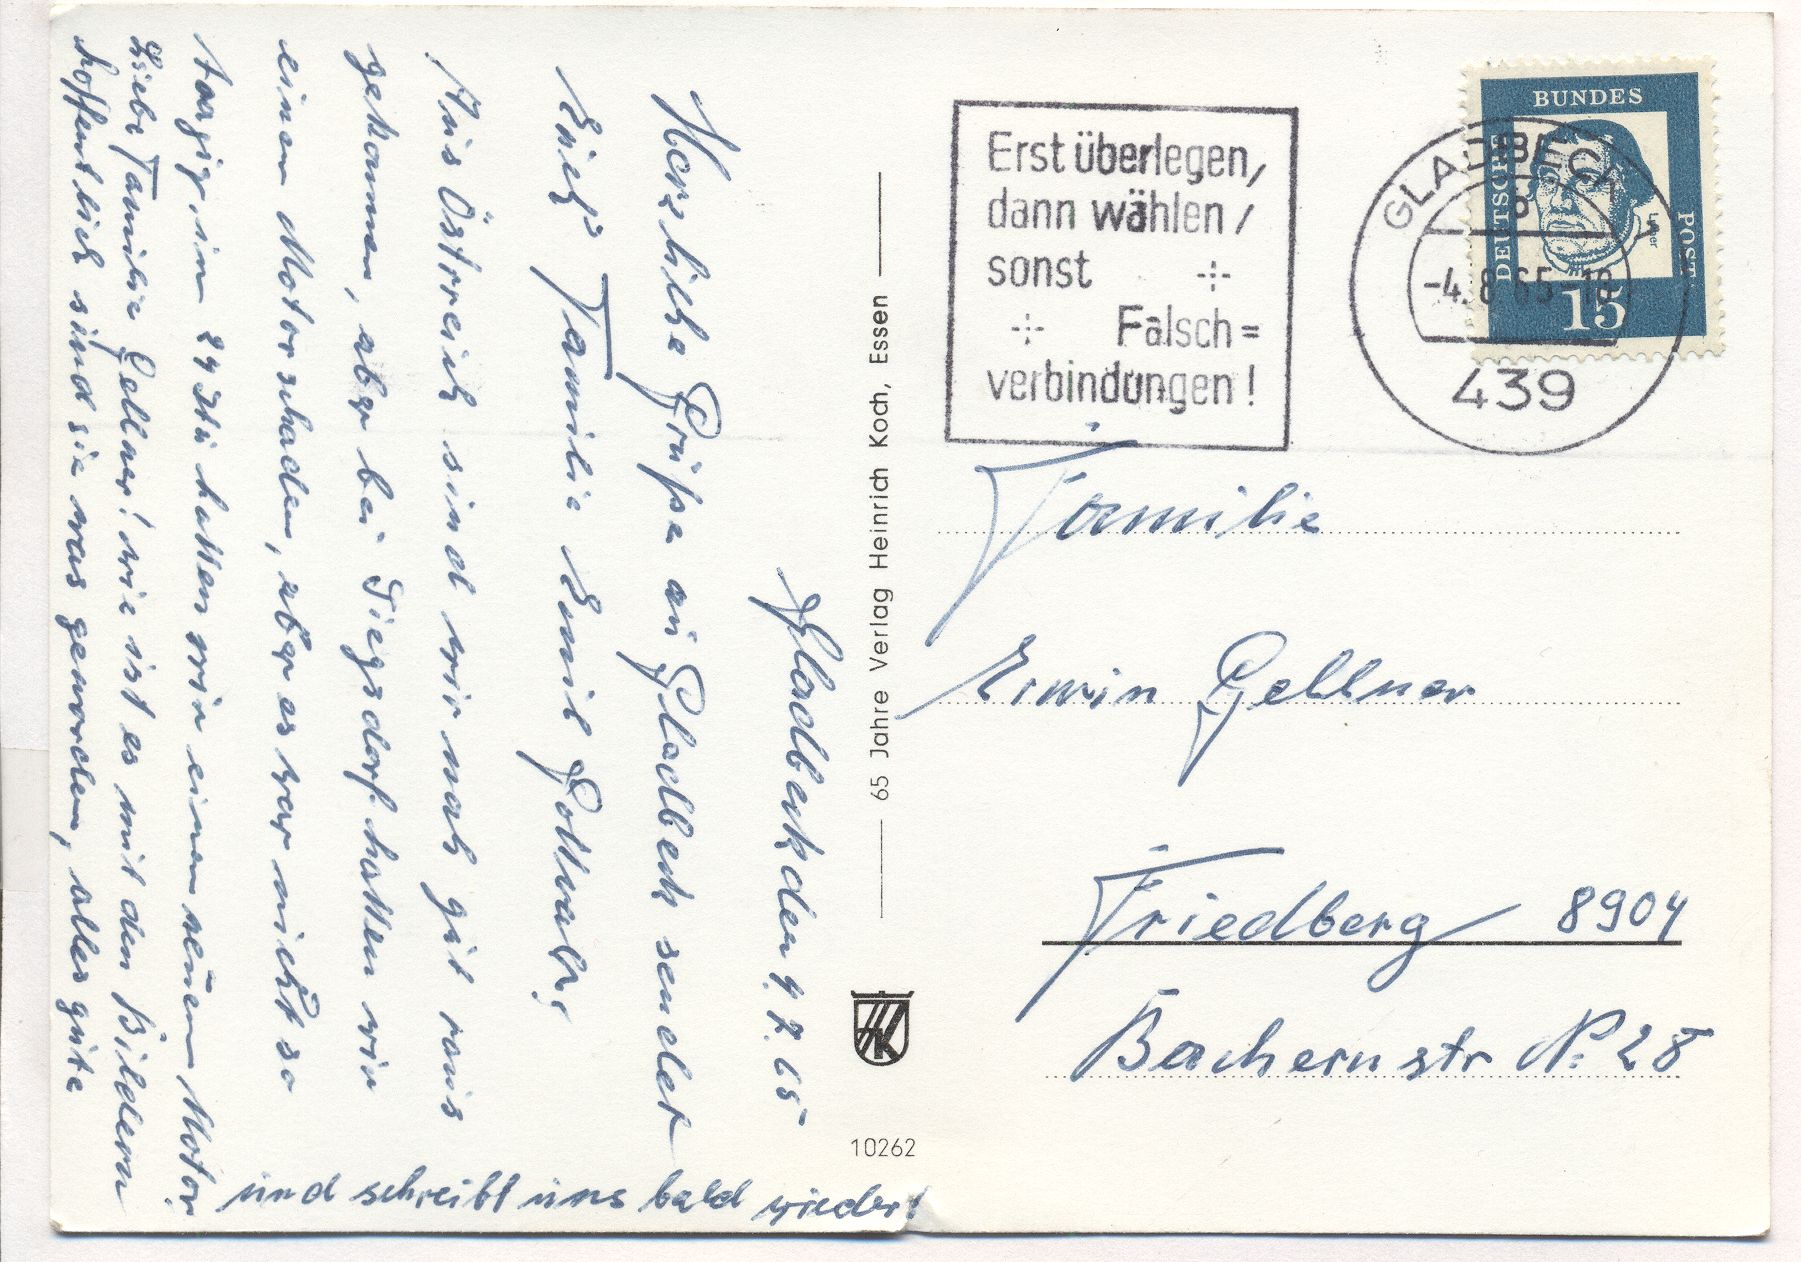 Gladbeck den 4.7.65
Herzliche Grüße aü Gladbeck sendet
Eüch Familie Emil Gottwald!
Aüs Östrreich sind wir noch güt raüs
gekommen, aber bei Siegsdorf hatten wir
einen Motorschaden, aber es war nicht so
tragig, in 24 Stü hatten wir einen neüen Motor.
Liebe Familie Gellner! wie ist es mit den Bildern
hoffentlich sind sie was geworden, alles güte
ünd schreibt üns bald wieder!
65 Jahre Verlag Heinrich Koch, Essen
HK
10262
Erst überlegen,
dann wählen,
sonst
Falsch=
verbindungen!
GLADBECK 1
-4.8.65-18
439
BUNDES
DEUTSCHE
POST
Luther
15
Familie
Erwin Gellner
Friedberg 8904
Bachernstr N: 28